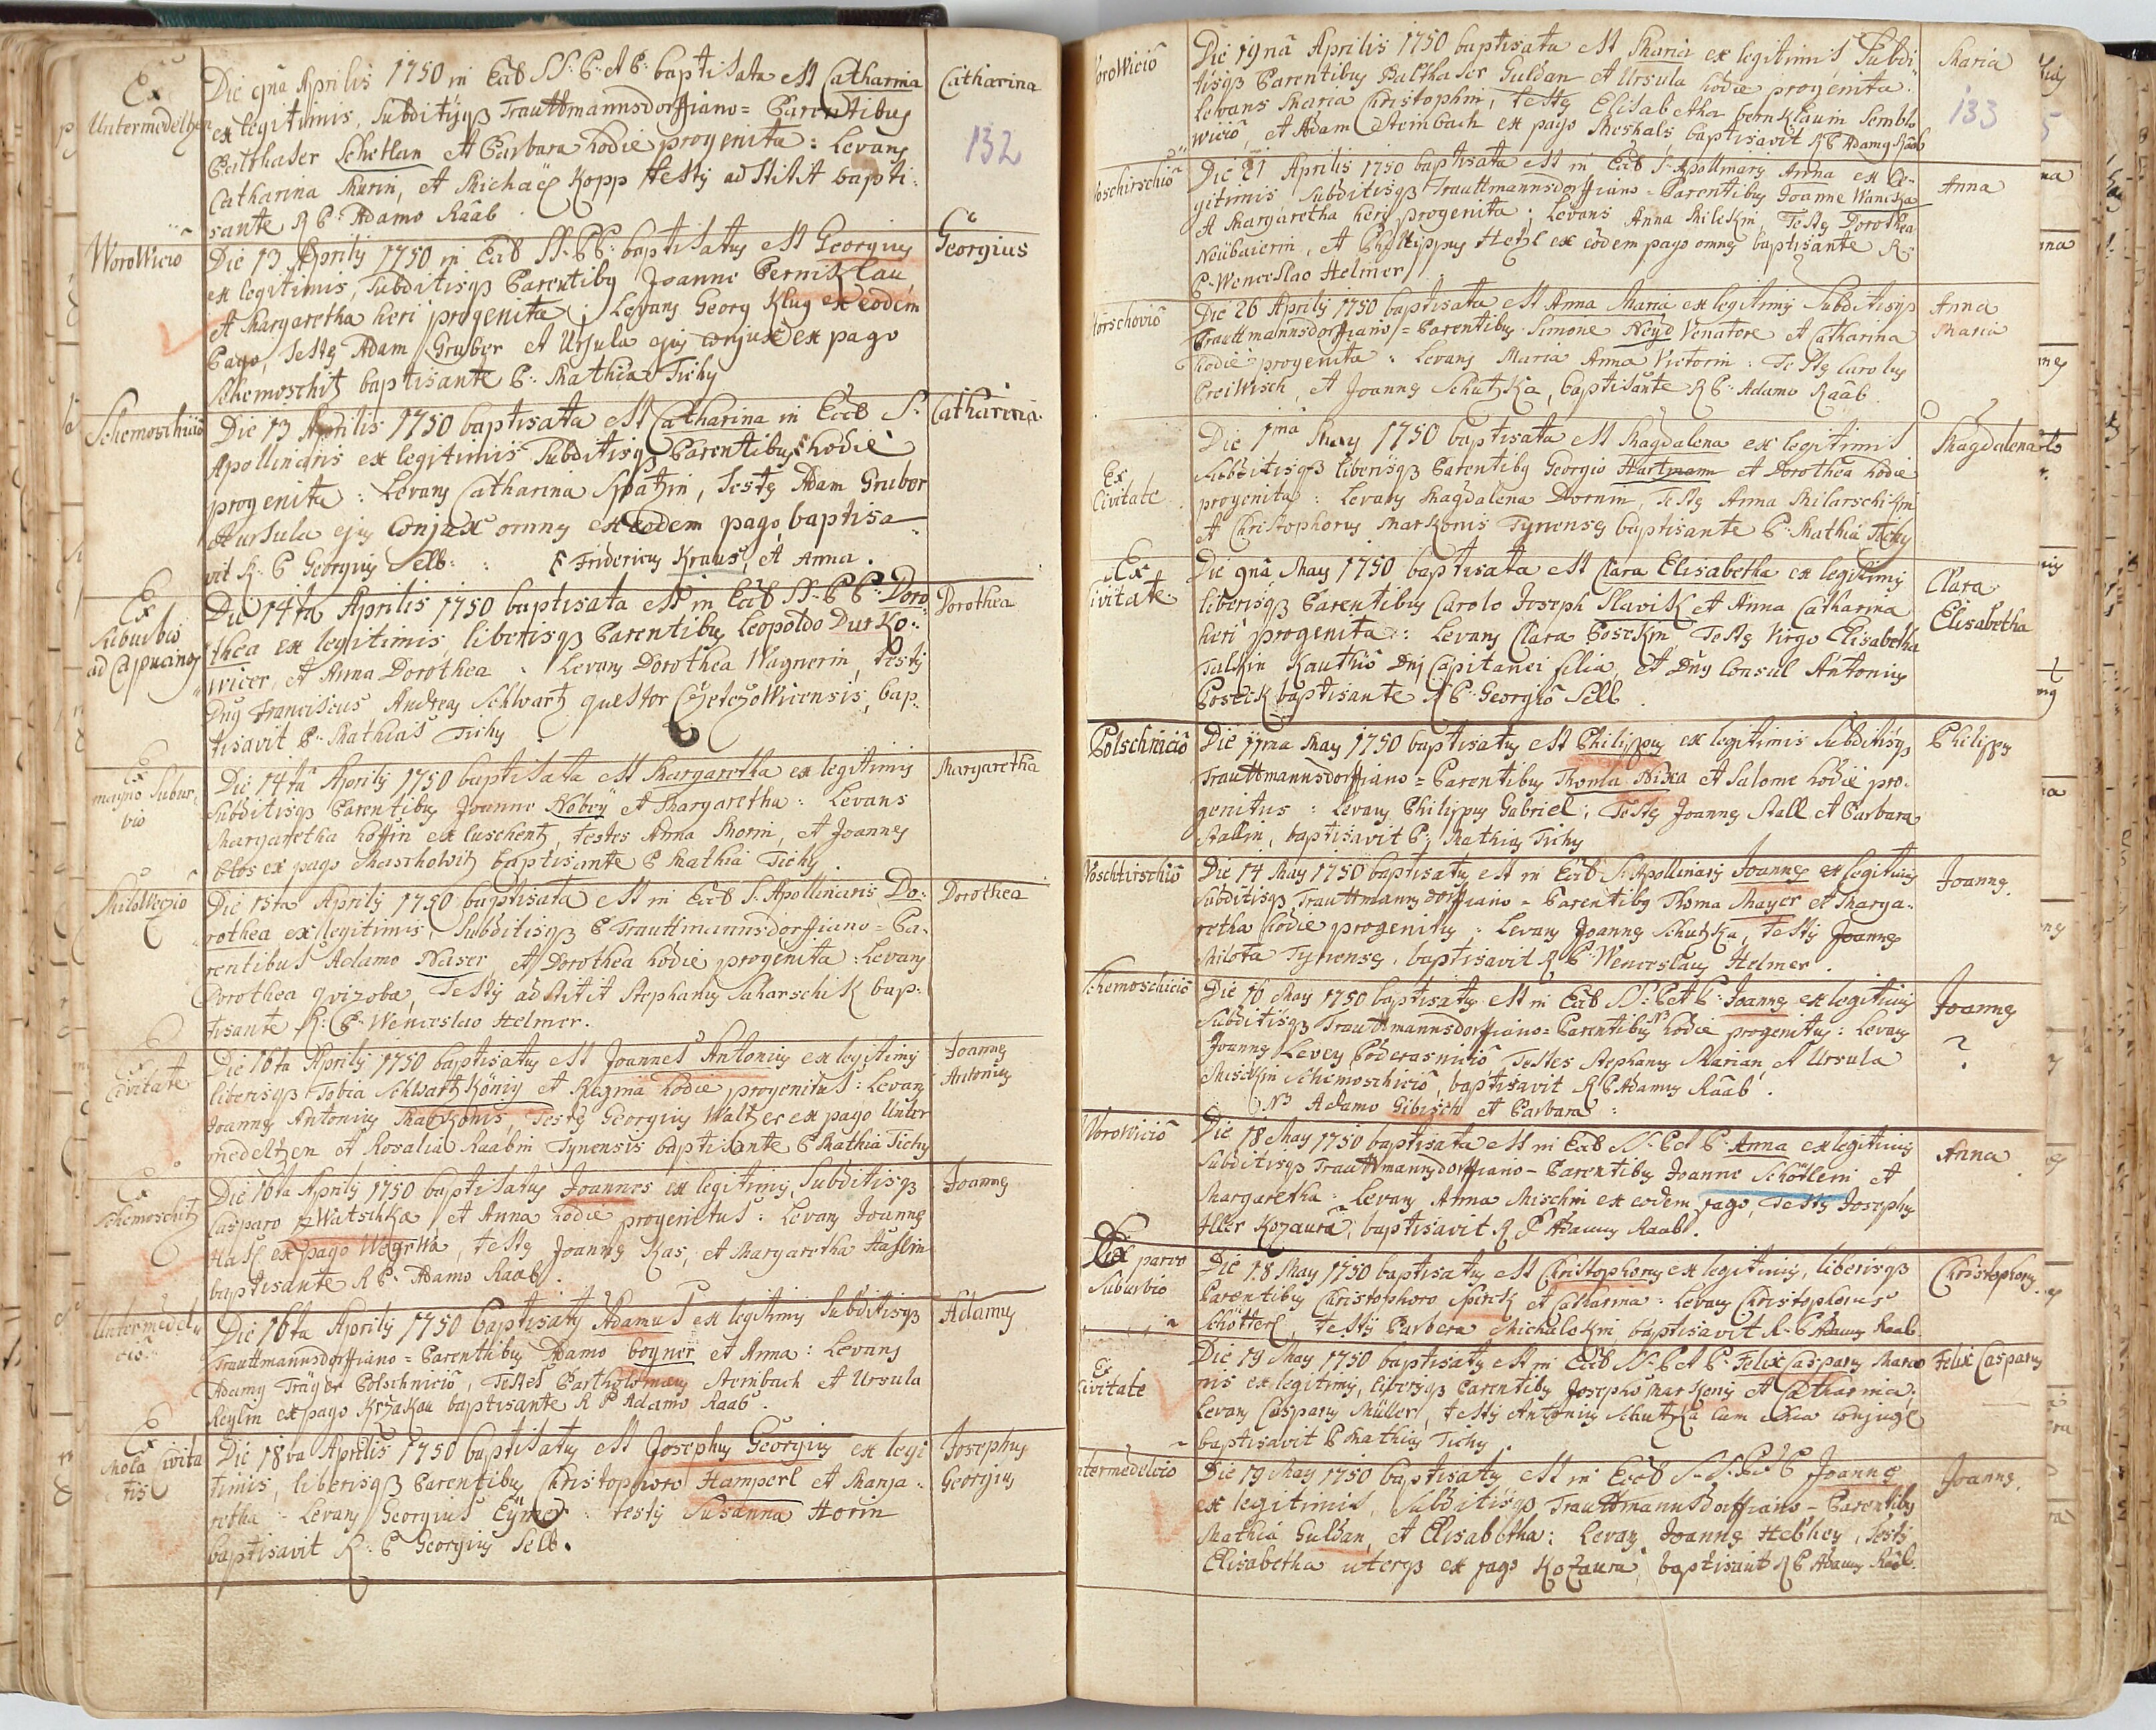 Ex
Untermedeltzen
Die 9na Aprilis 1750 in Eccl SS: P: et P: baptisata est Catharina
ex legitimis, subditisq Trauttmannsdorffiano = Parentibus
Balthaser Schetlan et Barbara hodie progenita: Levans
Catharina Murin, et Michael Kopp testes adstitit bapti-
sante R P: Adamo Raab.
Catharina
132
Worowicio
Die 13 Aprilis 1750 in Eccl SS: PP: baptisatus est Georgius
ex legitimis, subditisq Parentibus Joanne Perniklau
et Margaretha heri progenita; Levans Georg Klug ex eodem
Pago, Testes Adam Gruber et Ursula ejus conjux ex pago
Schemoschitz baptisante P: Mathia Tichy
Georgius
Schemoschitio
Die 13 Aprilis 1750 baptisata est Catharina in Eccl S:
Apollinaris ex legitimis subditisq Parentibus hodie
progenita: Levans Catharina Spatzin, Testes Adam Gruber
et Ursula ejus conjux omnes ex eodem pago baptisa-
vit R: P Georgius Selb: Fridericus Kraus, et Anna.
Catharina
Ex
Suburbio
ad Capucinos
Die 14ta Aprilis 1750 baptisata est in Eccl SS: PP: Doro-
thea ex legitimis, liberisq Parentibus Leopoldo Durko-
wicer, et Anna Dorothea: Levans Dorothea Wagnerin, testes
Dnus Franciscus Andreas Schwartz questor Chetezowicensis, bap-
tisavit P: Mathias Tichy
Dorothea
Ex
magno Subur-
bio
Die 14ta Aprilis 1750 baptisata est Margaretha ex legitimis
subditisq Parentibus Joanne Kobey et Margaretha: Levans
Margaretha hoffin ex Luschentz, testes Anna Morin, et Joannes
Blos ex pago Maschowitz baptisante P Mathia Tichy.
Margaretha
Milowecio
Die 15ta Aprilis 1750 baptisata est in Eccl S: Apollinaris Do-
rothea ex legitimis, subditisq P Trauttmannsdorffiano = Pa-
rentibus Adamo Naser et Dorothea hodie progenita: Levans
Dorothea Gvizoba, Testes adstitit Stephanus Saharschik bap-
tisante R: P: Wenceslao Helmer.
Dorothea
Ex
Civitate
Die 16ta Aprilis 1750 baptisatus est Joannes Antonius ex legitimis
liberisq Tobia Schwartzkönig et Regina hodie progenitus: Levans
Joannes Antonius Markonis, Testes Georgius Waltzer ex pago Unter
medeltzen et Rosalia Raabin Tynensis baptisante P Mathia Tichy
Joannes
Antonius
Ex
Schemoschitz
Die 16ta Aprilis 1750 baptisatus Joannes ex legitimis, subditisq
Casparo Watschka et Anna hodie progenitus: Levans Joannes
Hass ex pago Wegrwa, testes Joannes Kas, et Margaretha Hasslin
baptisante R P: Adamo Raab.
Joannes
Untermedel-
cio
Die 16ta Aprilis 1750 baptisatus Adamus ex legitimis subditisq
Trauttmannsdorffiano = Parentibus Adamo boyner et Anna: Levans
Adamus Träger Polschnicio, Testes Bartholomaeus Steinbach et Ursula
Reylin ex pago Krzakau baptisante R P Adamo Raab.
Adamus
Ex
Mola Civita
tis
Die 18va Aprilis 1750 baptisatus est Josephus Georgius ex legi
timis, liberisq Parentibus Christophoro Hamperl et Marga-
retha - Levans Georgius Eymer: testes Susanna Horin
baptisavit R: P Georgius Selb.
Josephus
Georgius
Worowicio
Die 19na Aprilis 1750 baptisata est Maria ex legitimis subdi-
tisq Parentibus Balthaser Guldan et Ursula hodie progenita:
Levans Maria Christophin, Testes Elisabetha Pernklauin Semblo
wicio, et Adam Steinbach ex pago Meskals, baptisavit R P Adamus Raab
Maria
133
Woschirschio
Die 21 Aprilis 1750 baptisata est in Eccl S: Apollinaris Anna ex le-
gitimis subditisq Trauttmannsdorffiano = Parentibus Joanne Waniska
et Margaretha heri progenita; Levans Anna Milekin, Testes Dorothea
Neübauerin, et Philippus Hetzl ex eodem pago omnes baptisante R:
P: Wenceslao Helmer.
Anna
Horschovio
Die 26 Aprilis 1750 baptisata est Anna Maria ex legitimis subditisq
Trauttmannsdorffiano = Parentibus Simone Neyd Venatore et Catharina
hodie progenita: Levans Maria Anna Victorin: Testes Carolus
Breiwisch, et Joannes Schutzka, baptisante R P: Adamo Raab.
Anna
Maria
Ex
Civitate
Die 1ma May 1750 baptisata est Magdalena ex legitimis
subditisq liberisq Parentibus Georgio Hartmann et Dorothea hodie
progenita: Levans Magdalena Dornin, Testes Anna Milarschikin
et Christophorus Markonis Tynenses baptisante P: Mathia Tichy
Magdalena
Ex
Civitate
Die 9na May 1750 baptisata est Clara Elisabetha ex legitimis
liberisq Parentibus Carolo Joseph Slavik et Anna Catharina
heri progenita: Levans Clara Posekin Testes Virgo Elisabetha
Tulskin Kauthio Dni Capitanei filia, et Dnus Consul Antonius
Posek baptisante R P: Georgio Selb.
Clara
Elisabetha
Polschnicio
Die 11ma May 1750 baptisatus est Philippus ex legitimis subditisq
Trauttmannsdorffiano = Parentibus Thoma Nixa et Salome hodie pro-
genitus: Levans Philippus Gabriel; Testes Joannes Stall et Barbara
Stallin, baptisavit P: Mathias Tichy
Philippus
Woschtirschio
Die 14 May 1750 baptisatus est in Eccl: S: Apollinaris Joannes ex legitimis
subditisq Trauttmannsdorffiano = Parentibus Thoma Mayer et Marga-
retha hodie progenitus: Levans Joannes Schutzka, testes Joannes
Milota Tynensis, baptisavit R P: Wenceslaus Helmer.
Joannes
Schemoschicio
Die 16 May 1750 baptisatus est in Eccl SS: P et P: Joannes ex legitimis
subditisq Trauttmannsdorffiano = Parentibus NB hodie progenitus: Levans
Joannes Levey Poderasnicio Testes Stephanus Marian et Ursula
Misekin Schemoschicio, baptisavit R P Adamus Raab.
NB Adamo Gibisch et Barbara:
Joannes
?
Worowicio
Die 18 May 1750 baptisata est in Eccl SS: P et P: Anna ex legitimis
subditisq Trauttmannsdorffiano - Parentibus Joanne Schötlem et
Margaretha: Levans Anna Mischni ex eodem pago, Testes Josephus
Aller Kozaura; baptisavit R P Adamus Raab.
Anna
Ex parvo
Suburbio
Die 18 May 1750 baptisatus est Christophorus ex legitimis, liberisq
Parentibus Christophoro Spirck et Catharina: Levans Christophorus
Schötterl, Testes Barbera Michalokin, baptisavit R: P Adamus Raab.
Christophorus
Ex
Civitate
Die 19 May 1750 baptisatus est in Eccl SS: P et P: Felix Casparus Marco
nis ex legitimis, liberisq Parentibus Josepho Markonis et Catharina:
Levans Casparus Müller, testes Antonius Schutzka cum sua conjuge
baptisavit P Mathias Tichy.
Felix Casparus
Untermedelcio
Die 19 May 1750 baptisatus est in Eccl S. S. P et P Joannes
ex legitimis, subditisq Trauttmannsdorffiano - Parentibus
Mathia Guldan, et Elisabetha: Levans Joannes Hebhey, testes
Elisabetha uterq ex pago Kozaura, baptisavit R P Adamus Raab.
Joannes.